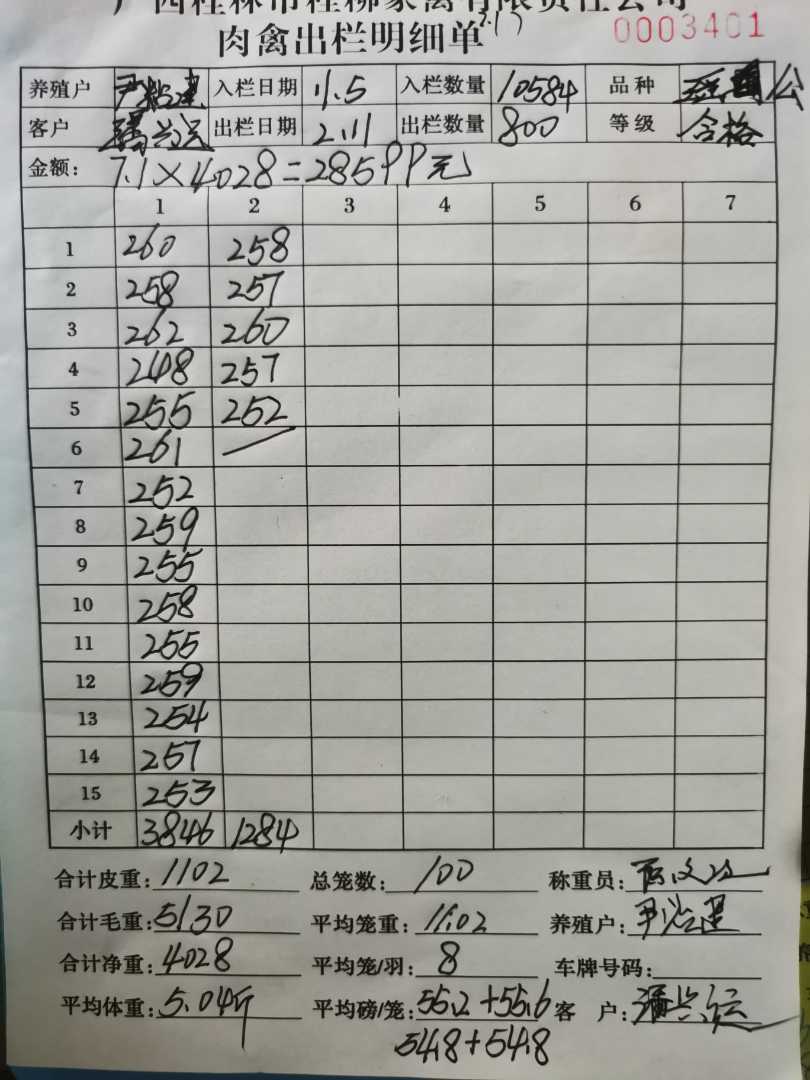 广西桂林市桂柳家禽有限责任公司
肉禽出栏明细单 2.17 0003401
养殖户 入栏日期 11.5 入栏数量 10584 品种 公
客户 潘兴运 出栏日期 2.11 出栏数量 800 等级 合格
金额: 7.1×4028=28599元
1 2 3 4 5 6 7
1 260 258
2 258 257
3 262 260
4 248 257
5 255 252
6 261
7 252
8 259
9 255
10 258
11 255
12 259
13 254
14 257
15 253
小计 3846 1284
合计皮重: 1102 总笼数: 100 称重员:
合计毛重: 5130 平均笼重: 11.02 养殖户:
合计净重: 4028 平均笼/羽: 8 车牌号码:
平均体重: 5.04斤 平均磅/笼: 55.2+55.6 客 户: 潘兴运
54.8+54.8